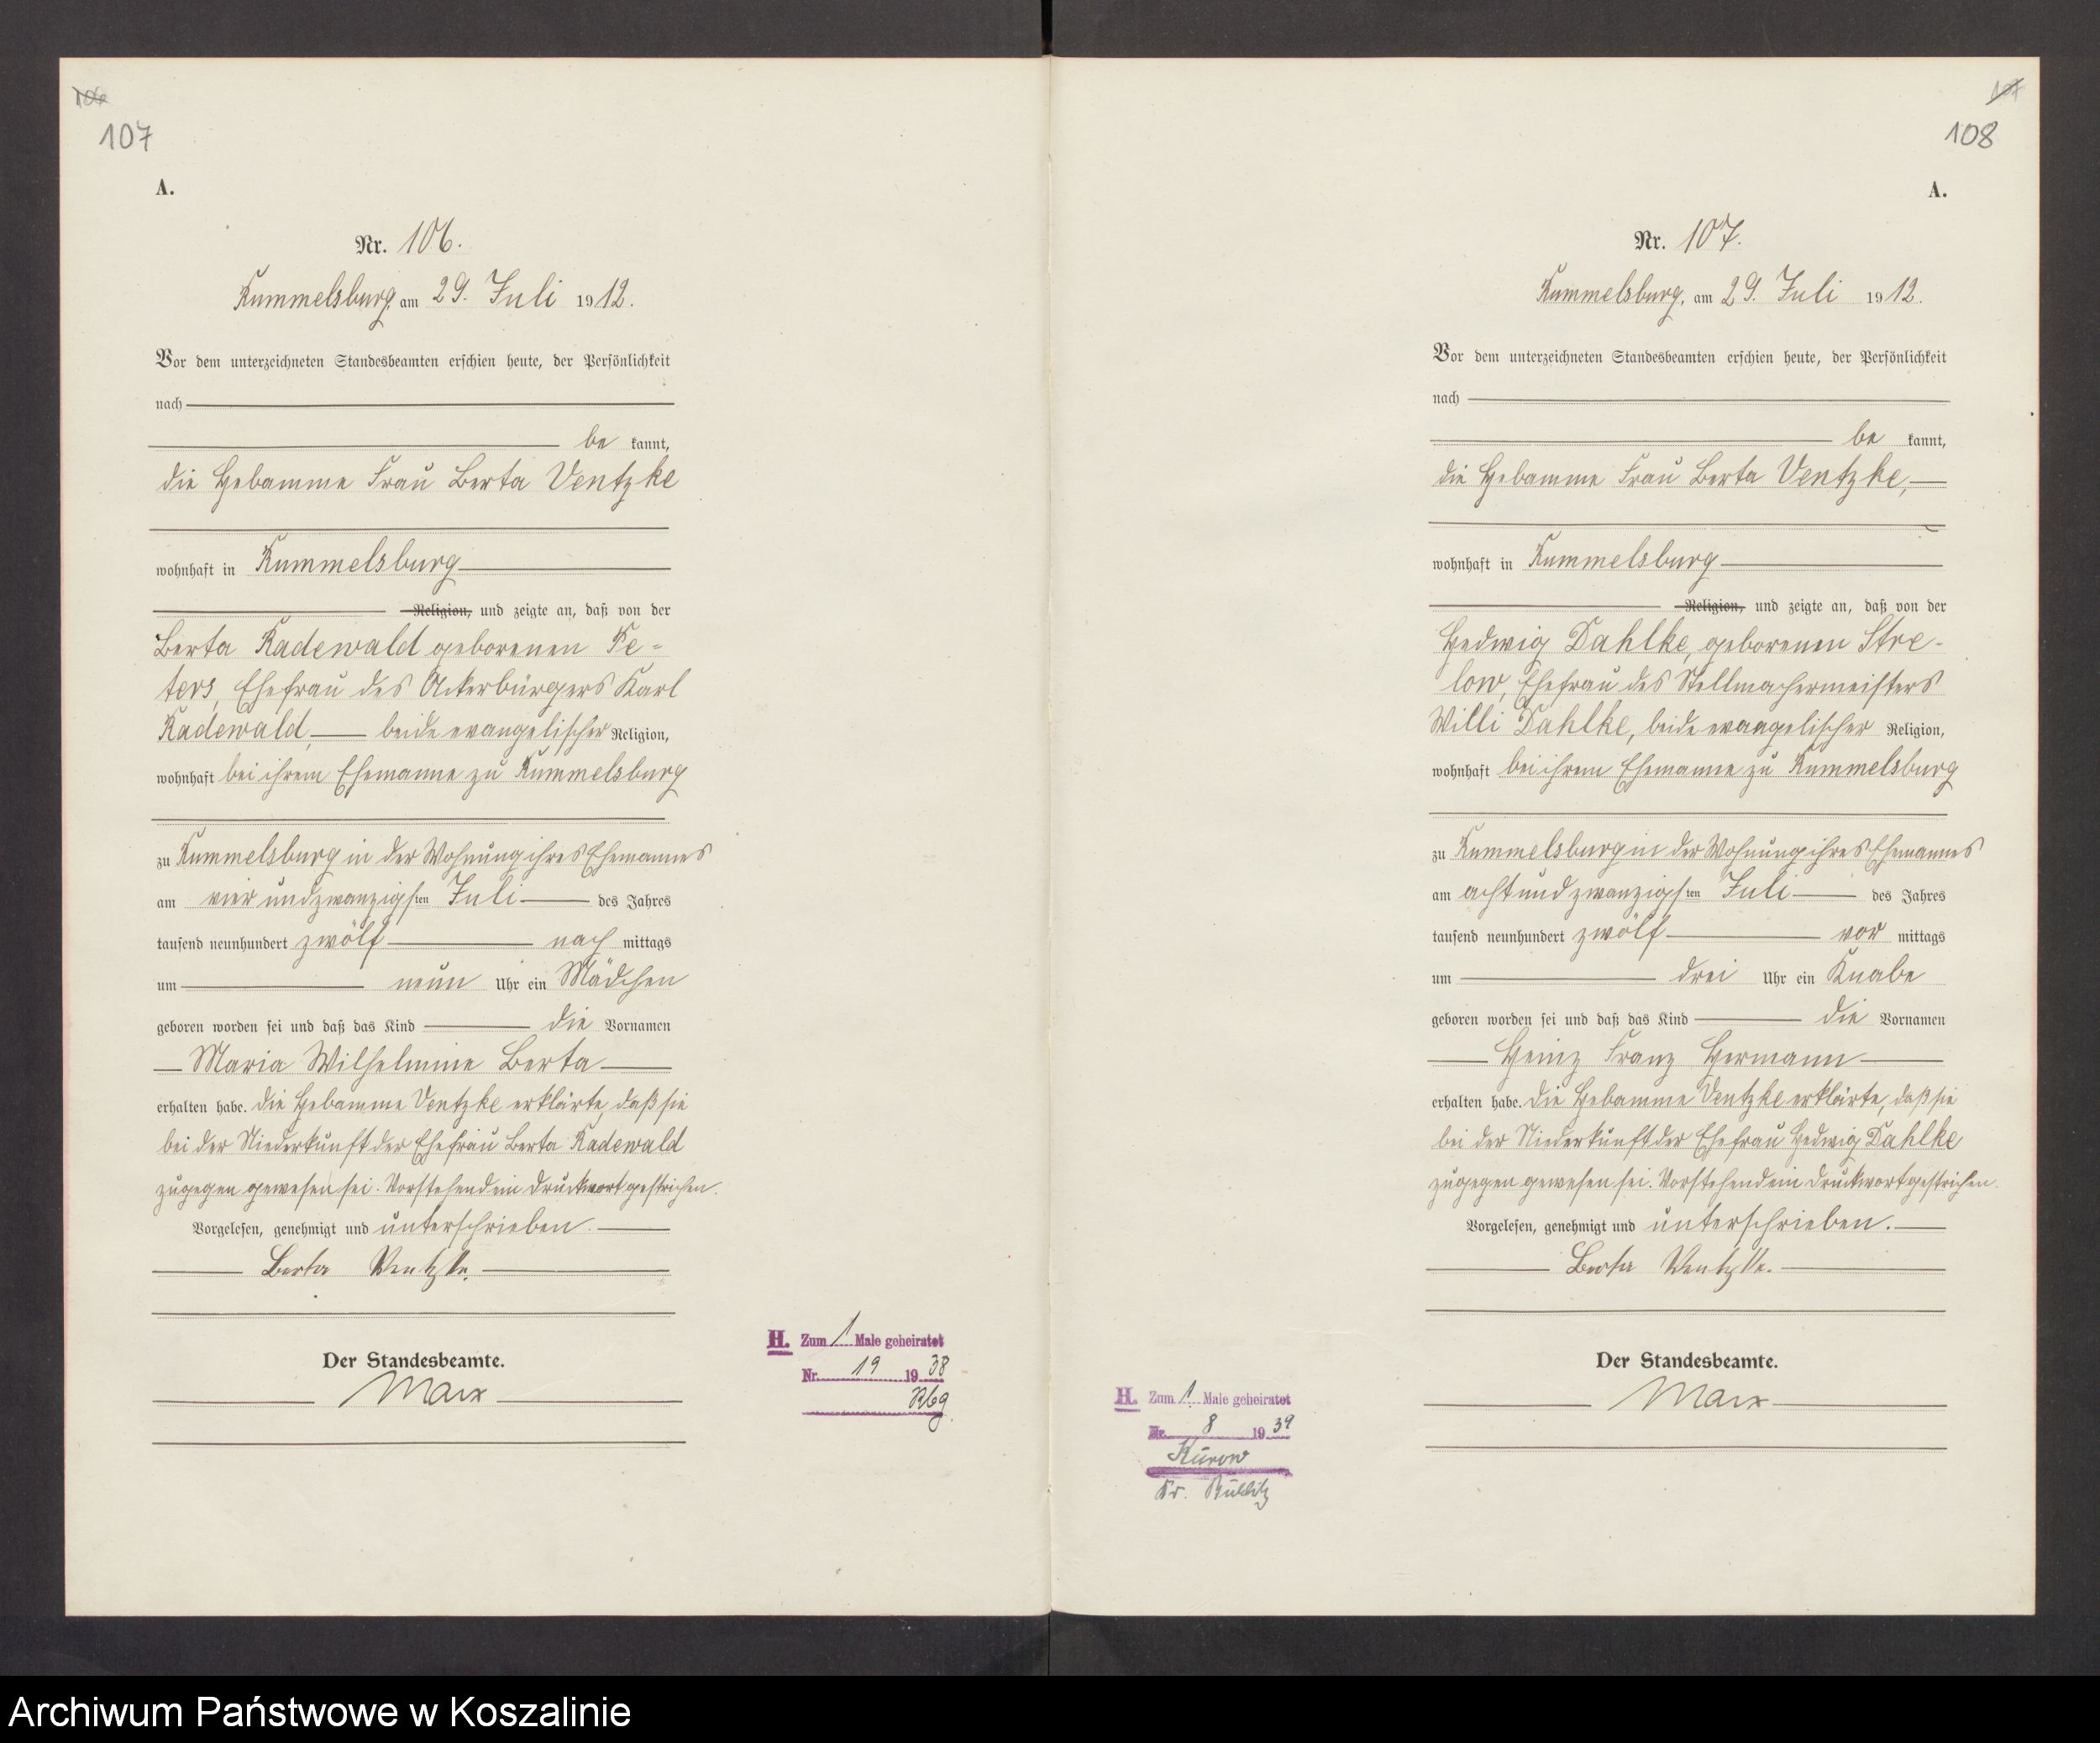 106
107
A.
Nr. 106.
Rummelsburg, am 29. Juli 1912.
Vor dem unterzeichneten Standesbeamten erschien heute, der Persönlichkeit
nach
be kannt,
die Hebamme Frau Berta Ventzke
wohnhaft in Rummelsburg
Religion, und zeigte an, daß von der
Berta Radewald geborenen Pe=
ters, Ehefrau des Ackerbürgers Karl
Radewald, beide evangelischer Religion,
wohnhaft bei ihrem Ehemanne zu Rummelsburg
zu Rummelsburg in der Wohnung ihres Ehemannes
am vierundzwanzigsten Juli des Jahres
tausend neunhundert zwölf nach mittags
um neun Uhr ein Mädchen
geboren worden sei und daß das Kind die Vornamen
Maria Wilhelmine Berta
erhalten habe. Die Hebamme Ventzke erklärte, daß sie
bei der Niederkunft der Ehefrau Berta Radewald
zugegen gewesen sei. Vorstehend ein Druckwort gestrichen.
Vorgelesen, genehmigt und unterschrieben.
Berta Ventzke.
Der Standesbeamte.
Marx
H. Zum 1 Male geheiratet
Nr. 19 1938
Rbg.
107
108
A.
Nr. 107.
Rummelsburg, am 29. Juli 1912.
Vor dem unterzeichneten Standesbeamten erschien heute, der Persönlichkeit
nach
be kannt,
die Hebamme Frau Berta Ventzke,
wohnhaft in Rummelsburg
Religion, und zeigte an, daß von der
Hedwig Dahlke, geborenen Stre-
low, Ehefrau des Stellmachermeisters
Willi Dahlke, beide evangelischer Religion,
wohnhaft bei ihrem Ehemanne zu Rummelsburg
zu Rummelsburg in der Wohnung ihres Ehemannes
am achtundzwanzigsten Juli des Jahres
tausend neunhundert zwölf vor mittags
um drei Uhr ein Knabe
geboren worden sei und daß das Kind die Vornamen
Heinz Franz Hermann
erhalten habe. Die Hebamme Ventzke erklärte, daß sie
bei der Niederkunft der Ehefrau Hedwig Dahlke
zugegen gewesen sei. Vorstehend ein Druckwort gestrichen.
Vorgelesen, genehmigt und unterschrieben.
Berta Ventzke.
Der Standesbeamte.
Marx
H. Zum 1 Male geheiratet
Nr. 8 1939
Kurow
Kr. Bublitz
Archiwum Państwowe w Koszalinie